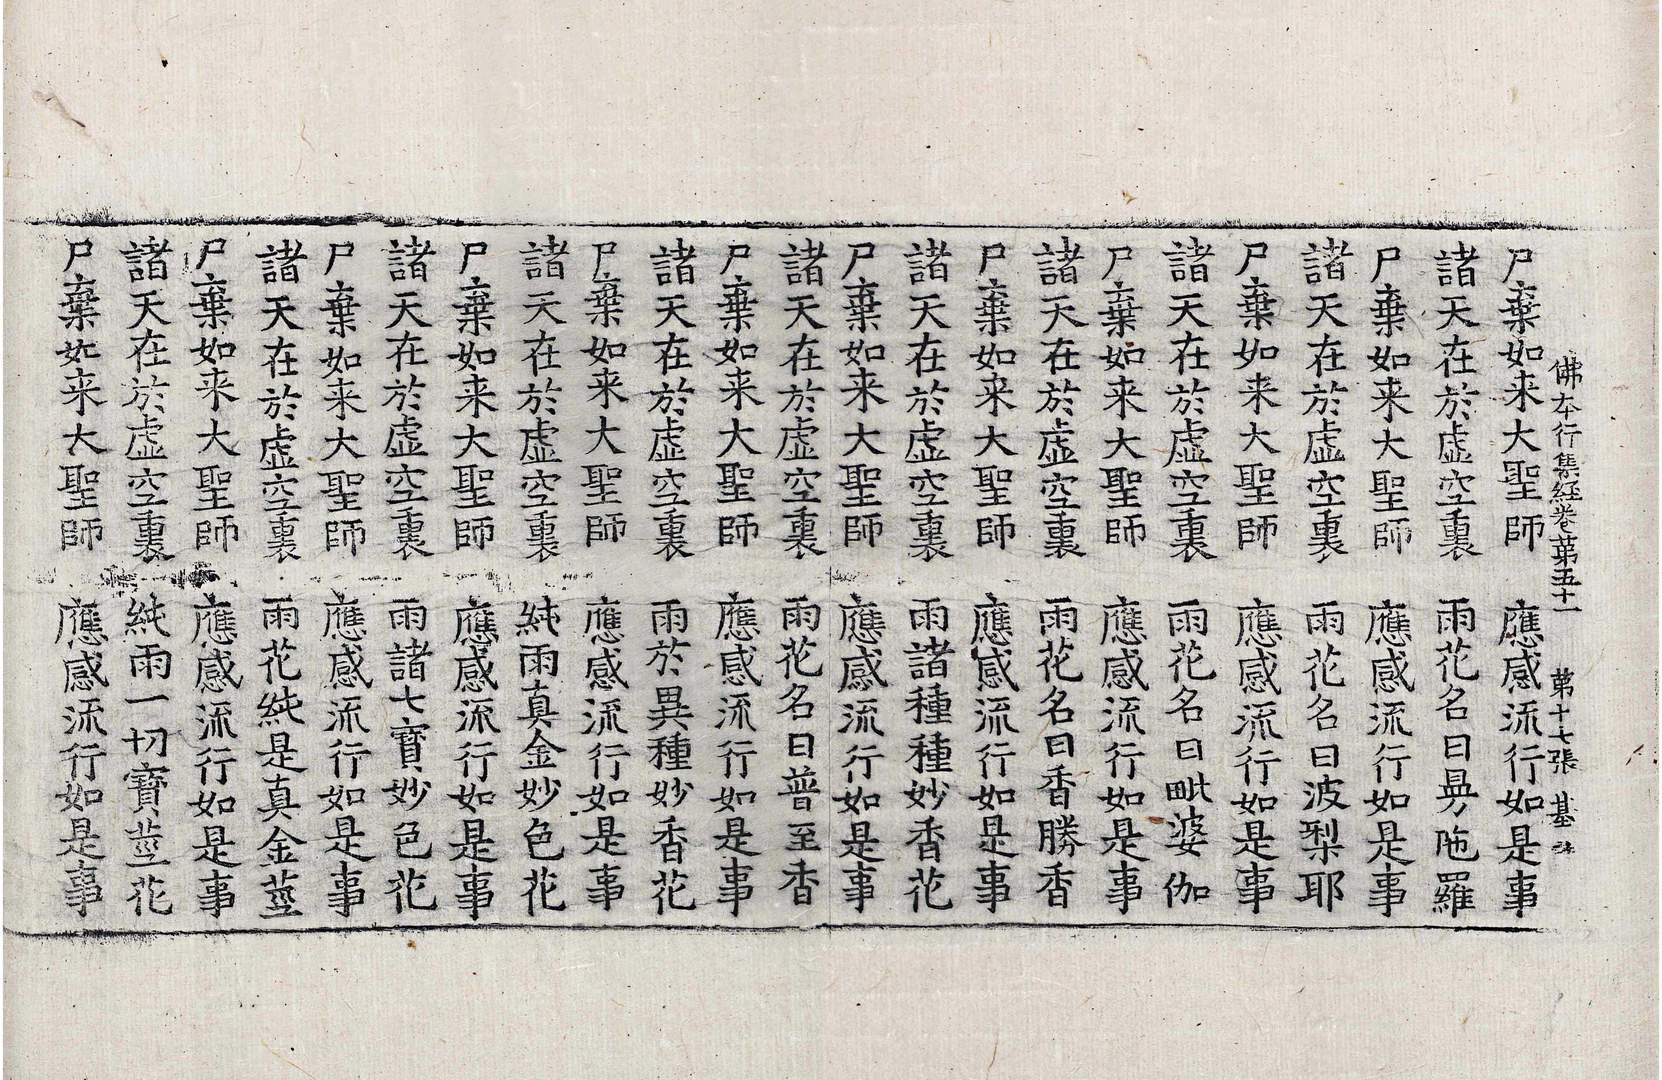 佛夲行集経卷苐五十一 苐十七張 基
尸棄如来大聖師 應感流行如是事
諸天在於虛空裏 雨花名曰曼陁羅
尸棄如来大聖師 應感流行如是事
諸天在於虛空裏 雨花名曰波梨耶
尸棄如来大聖師 應感流行如是事
諸天在於虛空裏 雨花名曰毗婆伽
尸棄如来大聖師 應感流行如是事
諸天在於虛空裏 雨花名曰香勝香
尸棄如来大聖師 應感流行如是事
諸天在於虛空裏 雨諸種種妙香花
尸棄如来大聖師 應感流行如是事
諸天在於虛空裏 雨花名曰普至香
尸棄如来大聖師 應感流行如是事
諸天在於虛空裏 雨於異種妙香花
尸棄如来大聖師 應感流行如是事
諸天在於虛空裏 純雨真金妙色花
尸棄如来大聖師 應感流行如是事
諸天在於虛空裏 雨諸七寶妙色花
尸棄如来大聖師 應感流行如是事
諸天在於虛空裏 雨花純是真金莖
尸棄如来大聖師 應感流行如是事
諸天在於虛空裏 純雨一切寶莖花
尸棄如来大聖師 應感流行如是事